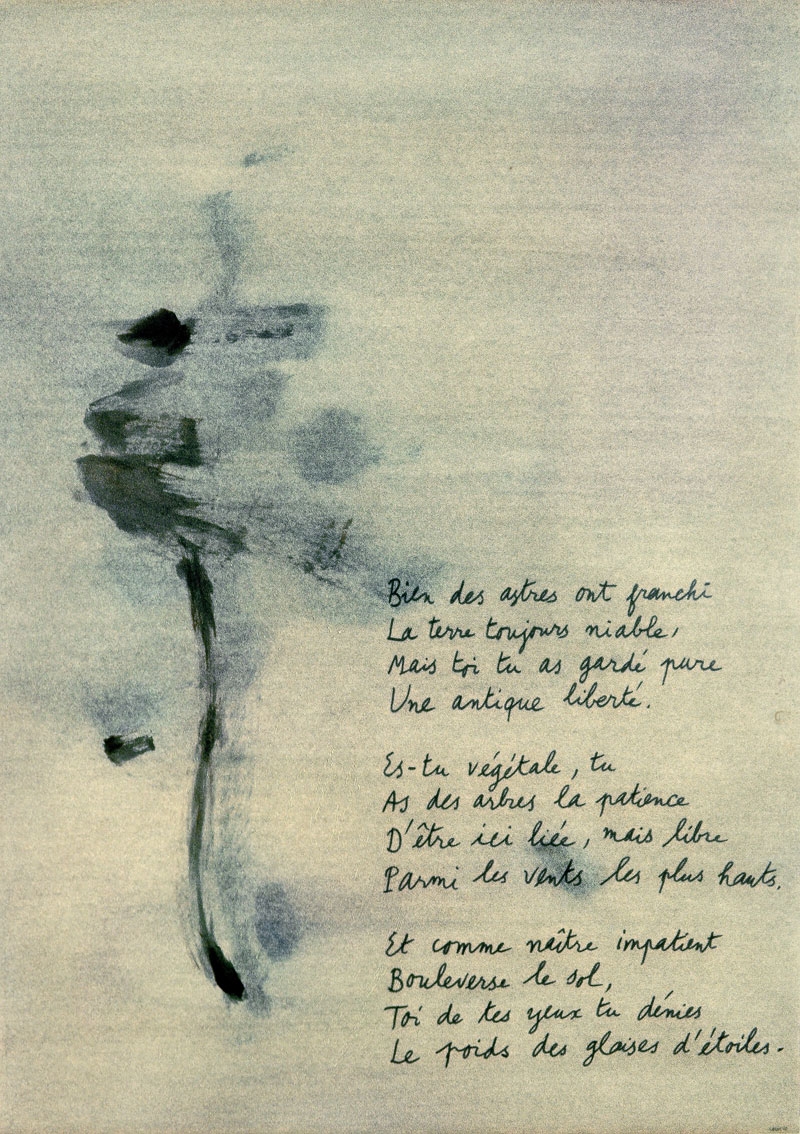 Bien des astres ont franchi
La terre toujours niable,
Mais toi tu as gardé pure
Une antique liberté.
Es-tu végétale, tu
As des arbres la patience
D'être ici liée, mais libre
Parmi les vents les plus hauts.
Et comme naître impatient
Bouleverse le sol,
Toi de tes yeux tu dénies
Le poids des glaises d'étoiles.